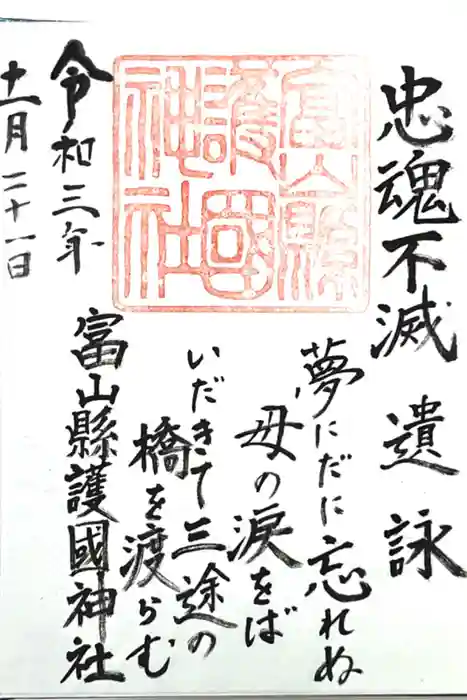 忠魂不滅 遺詠
夢にだに忘れぬ
母の涙をば
いだきて三途の
橋を渡らむ
富山縣護國神社
富山縣
護國
神社
令和三年
十一月二十一日